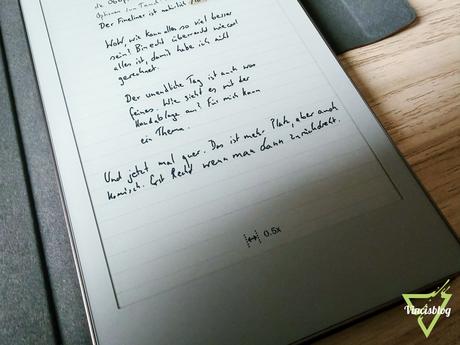 Der Fineliner ist natürlich
Wow, wie kann alles so viel besser
sein! Bin echt überrascht wie cool
alles ist, damit habe ich nicht
gerechnet.
Der unendliche Tag ist auch was
feines. Wie sieht es mit der
Handablage aus? Für mich kein
ein Thema.
Und jetzt mal quer. Das ist mehr Platz, aber auch
komisch. Erst Recht wenn man dann zurückdreht.
0.5x
Vincisblog